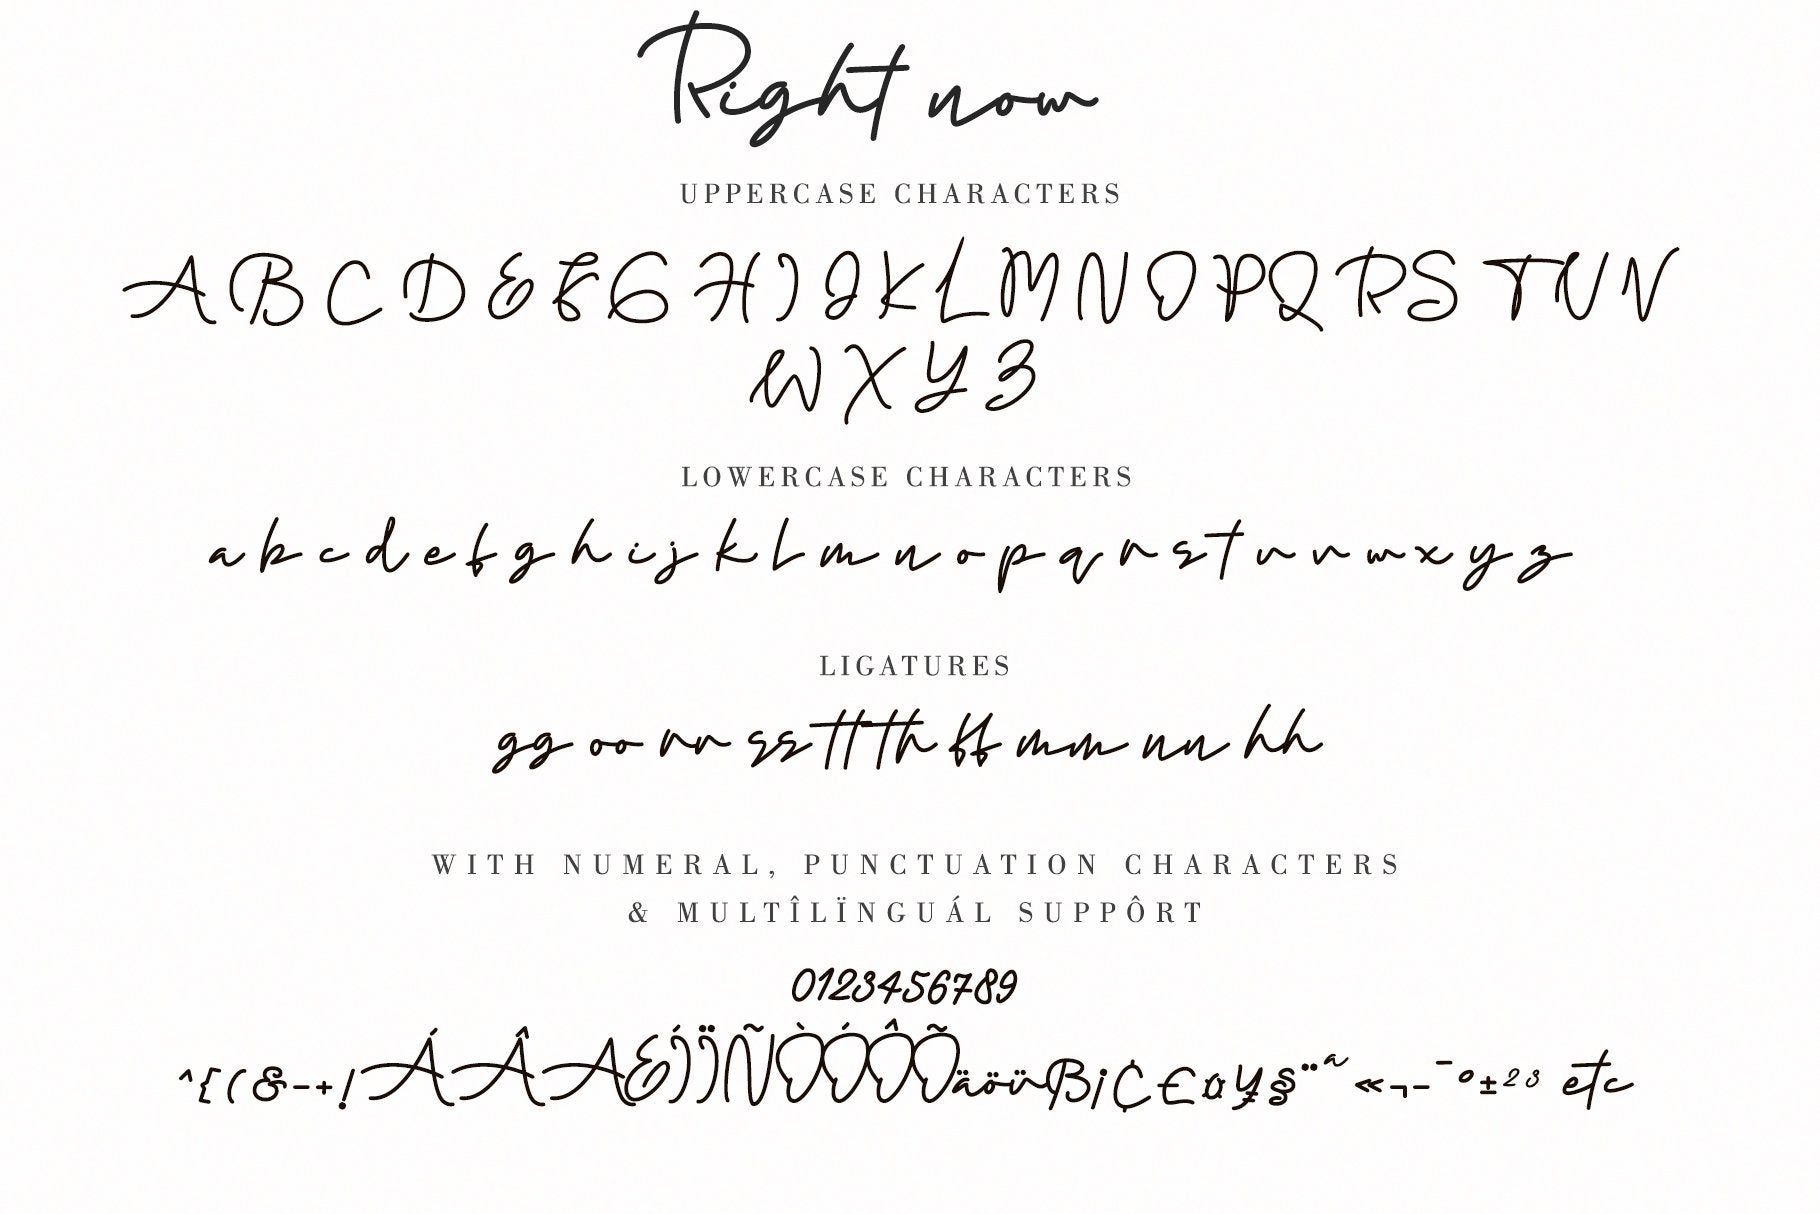 Right now
UPPERCASE CHARACTERS
A B C D E F G H I J K L M N O P Q R S T U V
W X Y Z
LOWERCASE CHARACTERS
a b c d e f g h i j k l m n o p q r s t u v w x y z
LIGATURES
gg oo rr ss tt th ff mm nn hh
WITH NUMERAL, PUNCTUATION CHARACTERS
& MULTÎLÏNGUÁL SUPPÔRT
0123456789
^{(&-+!ÁÂÆÍÏÑÒÓÔÕäöüß¡¢€¤¥§¨ª«¬-¯º±²³ etc